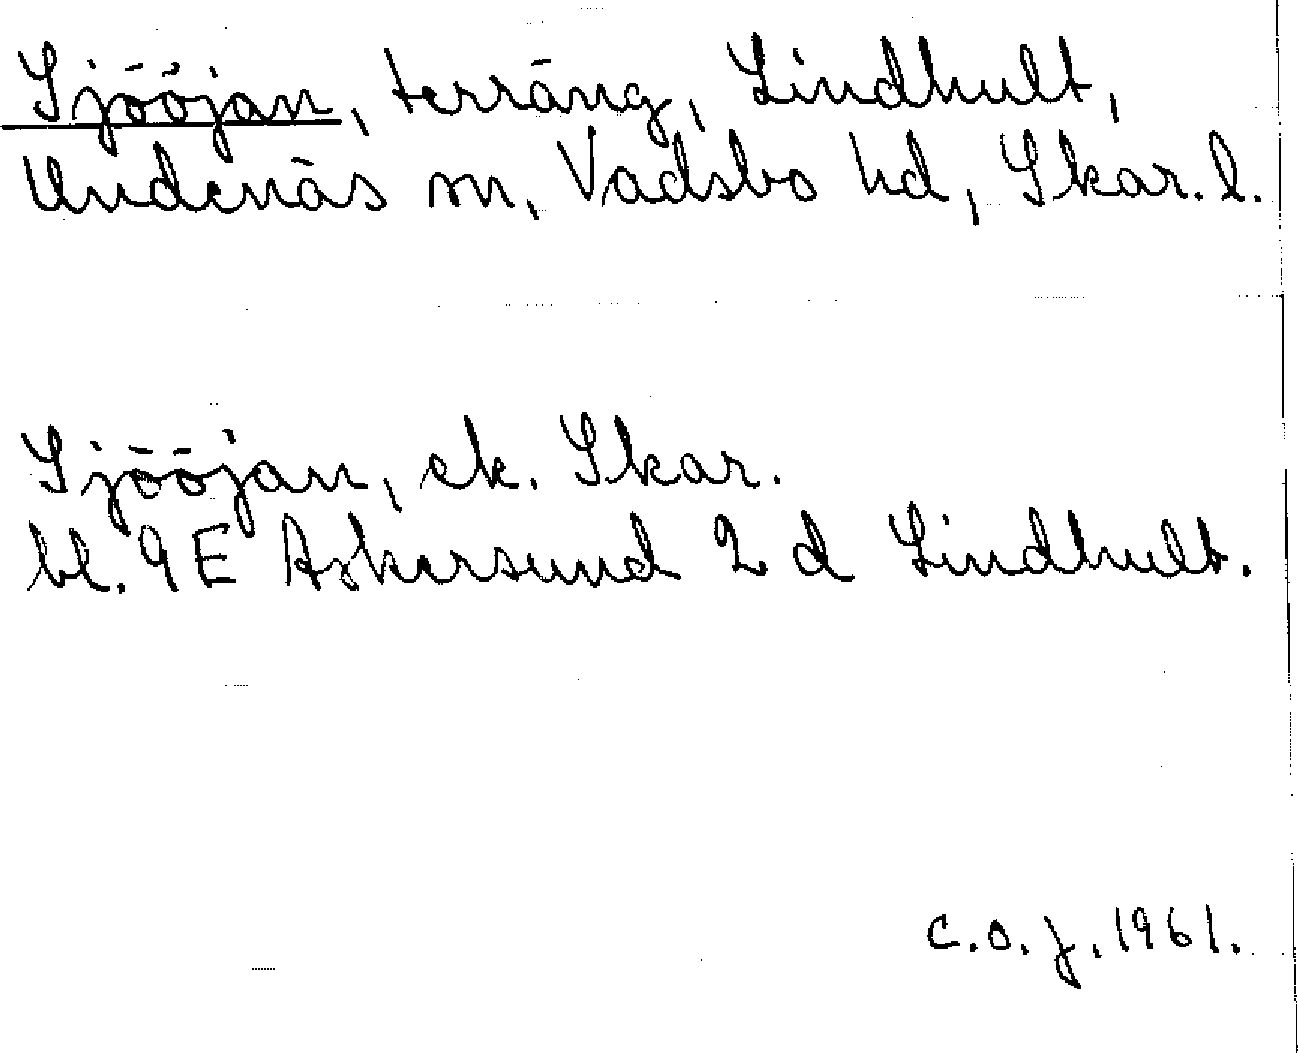 Sjööjan, terräng, Lindhult,
Undenäs sn, Vadsbo hd, Skar. l.
Sjööjan, ek. Skar.
bl. 9E Askersund 2 d Lindhult.
C.O.J. 1961.